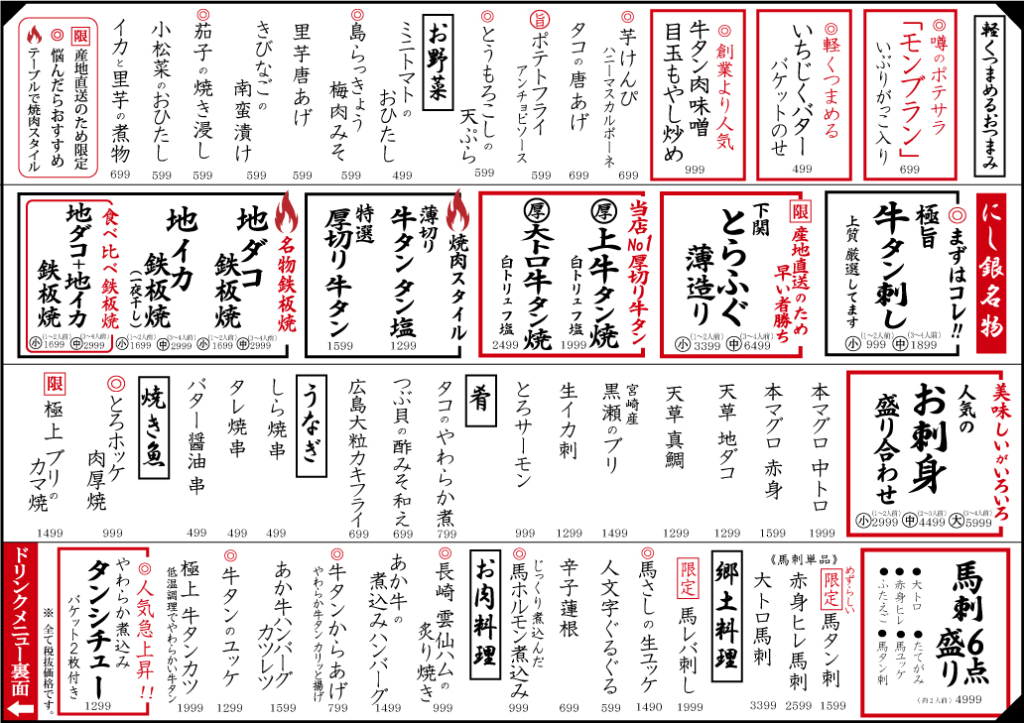 軽くつまめるおつまみ
◎噂のポテサラ
「モンブラン」
いぶりがっこ入り
699
◎軽くつまめる
いちじくバター
バケットのせ
499
◎創業より人気
牛タン肉味噌
目玉もやし炒め
999
◎芋けんぴ
ハニーマスカルポーネ
699
タコの唐あげ
699
ポテトフライ
アンチョビソース
599
◎とうもろこしの
天ぷら
599
お野菜
ミニトマトの
おひたし
499
◎島らっきょう
梅肉みそ
599
里芋唐あげ
599
きびなごの
南蛮漬け
599
◎茄子の焼き浸し
599
小松菜のおひたし
599
イカと里芋の煮物
699
限 産地直送のため限定
◎ 悩んだらおすすめ
テーブルで焼肉スタイル
にし銀名物
◎まずはコレ!!
極旨
牛タン刺し
上質 厳選してます
小(1〜2人前) 999
中(3〜4人前) 1899
限 産地直送のため
早い者勝ち
下関
とらふぐ
薄造り
小(1〜2人前) 3399
中(3〜4人前) 6499
当店No1厚切り牛タン
厚 上牛タン焼
白トリュフ塩
1999
厚 大トロ牛タン焼
白トリュフ塩
2499
焼肉スタイル
薄切り
牛タンタン塩
1299
特選
厚切り牛タン
1599
名物鉄板焼
地ダコ
鉄板焼
小(1〜2人前) 1699
中(3〜4人前) 2999
地イカ
鉄板焼
(一夜干し)
小(1〜2人前) 1699
中(3〜4人前) 2999
食べ比べ鉄板焼
地ダコ+地イカ
鉄板焼
小(1〜2人前) 1699
中(3〜4人前) 2999
美味しいがいろいろ
人気の
お刺身
盛り合わせ
小(1〜2人前) 2999
中(2〜3人前) 4499
大(3〜4人前) 5999
本マグロ 中トロ
1999
本マグロ 赤身
1599
天草 地ダコ
1299
天草 真鯛
1299
宮崎産
黒瀬のブリ
1499
生イカ刺
1299
とろサーモン
999
肴
タコのやわらか煮
799
つぶ貝の酢みそ和え
699
広島大粒カキフライ
699
うなぎ
しら焼串
499
タレ焼串
499
バター醤油串
499
焼き魚
◎とろホッケ
肉厚焼
999
限 極上 ブリの
カマ焼
1499
馬刺6点
盛り
●大トロ
●赤身ヒレ
●ふたえご
●たてがみ
●馬ユッケ
●馬タン刺
(約2人前) 4999
《馬刺単品》
めずらしい
限定 馬タン刺
1599
赤身ヒレ馬刺
2599
大トロ馬刺
3399
郷土料理
限定 馬レバ刺し
1999
◎馬さしの生ユッケ
1490
人文字ぐるぐる
599
辛子蓮根
699
じっくり煮込んだ
◎馬ホルモン煮込み
999
お肉料理
◎長崎 雲仙ハムの
炙り焼き
999
あか牛の
煮込みハンバーグ
1499
◎牛タンからあげ
やわらか牛タンカリッと揚げ
799
あか牛ハンバーグ
カツレツ
1599
◎牛タンのユッケ
1299
極上 牛タンカツ
低温調理でやわらかい牛タン
1999
◎人気急上昇!!
やわらか煮込み
タンシチュー
バケット2枚付き
1299
※ 全て税抜価格です。
ドリンクメニュー裏面